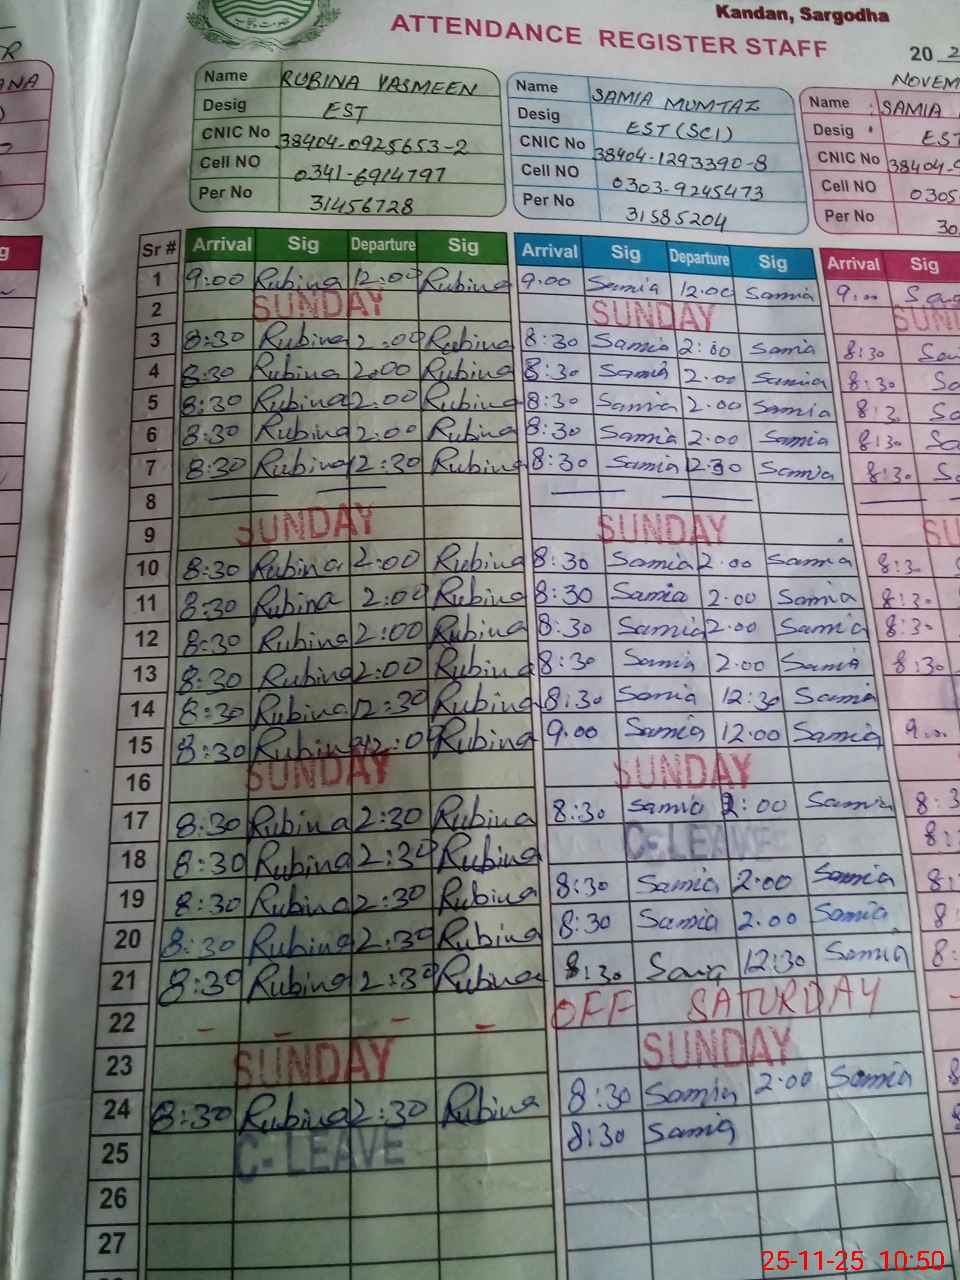 Kandan, Sargodha
ATTENDANCE REGISTER STAFF
20
NOVEM
Name RUBINA YASMEEN
Desig EST
CNIC No 38404-0925653-2
Cell NO 0341-6914797
Per No 31456728
Name SAMIA MUMTAZ
Desig EST (SCI)
CNIC No 38404-1293390-8
Cell NO 0303-9245473
Per No 31585204
Name : SAMIA
Desig EST
CNIC No 38404-9
Cell NO 0305
Per No 30
Sr # Arrival Sig Departure Sig Arrival Sig Departure Sig Arrival Sig
1 9:00 Rubina 12:00 Rubina 9.00 Samia 12.00 Samia 9.00
2 SUNDAY SUNDAY SUN
3 8:30 Rubina 2:00 Rubina 8:30 Samia 2:00 Samia 8:30
4 8:30 Rubina 2:00 Rubina 8:30 Samia 2.00 Samia 8:30
5 8:30 Rubina 2:00 Rubina 8:30 Samia 2.00 Samia 8:30
6 8:30 Rubina 2:00 Rubina 8:30 Samia 2.00 Samia 8:30
7 8:30 Rubina 12:30 Rubina 8:30 Samia 12.30 Samia 8:30
8
9 SUNDAY SUNDAY SU
10 8:30 Rubina 2:00 Rubina 8:30 Samia 2.00 Samia 8:30
11 8:30 Rubina 2:00 Rubina 8:30 Samia 2.00 Samia 8:30
12 8:30 Rubina 2:00 Rubina 8:30 Samia 2.00 Samia 8:30
13 8:30 Rubina 2:00 Rubina 8:30 Samia 2.00 Samia 8:30
14 8:30 Rubina 12:30 Rubina 8:30 Samia 12:30 Samia
15 8:30 Rubina 12:00 Rubina 9.00 Samia 12.00 Samia 9.00
16 SUNDAY SUNDAY
17 8:30 Rubina 2:30 Rubina 8:30 Samia 2:00 Samia 8:3
18 8:30 Rubina 2:30 Rubina C-LEAVE 8:
19 8:30 Rubina 2:30 Rubina 8:30 Samia 2.00 Samia 8:
20 8:30 Rubina 2:30 Rubina 8:30 Samia 2.00 Samia 8
21 8:30 Rubina 2:30 Rubina 8:30 12:30 Samia 8:
22 - - - - OFF SATURDAY
23 SUNDAY SUNDAY
24 8:30 Rubina 2:30 Rubina 8:30 Samia 2:00 Samia 8
25 C-LEAVE 8:30 Samia
26
27
25-11-25 10:50